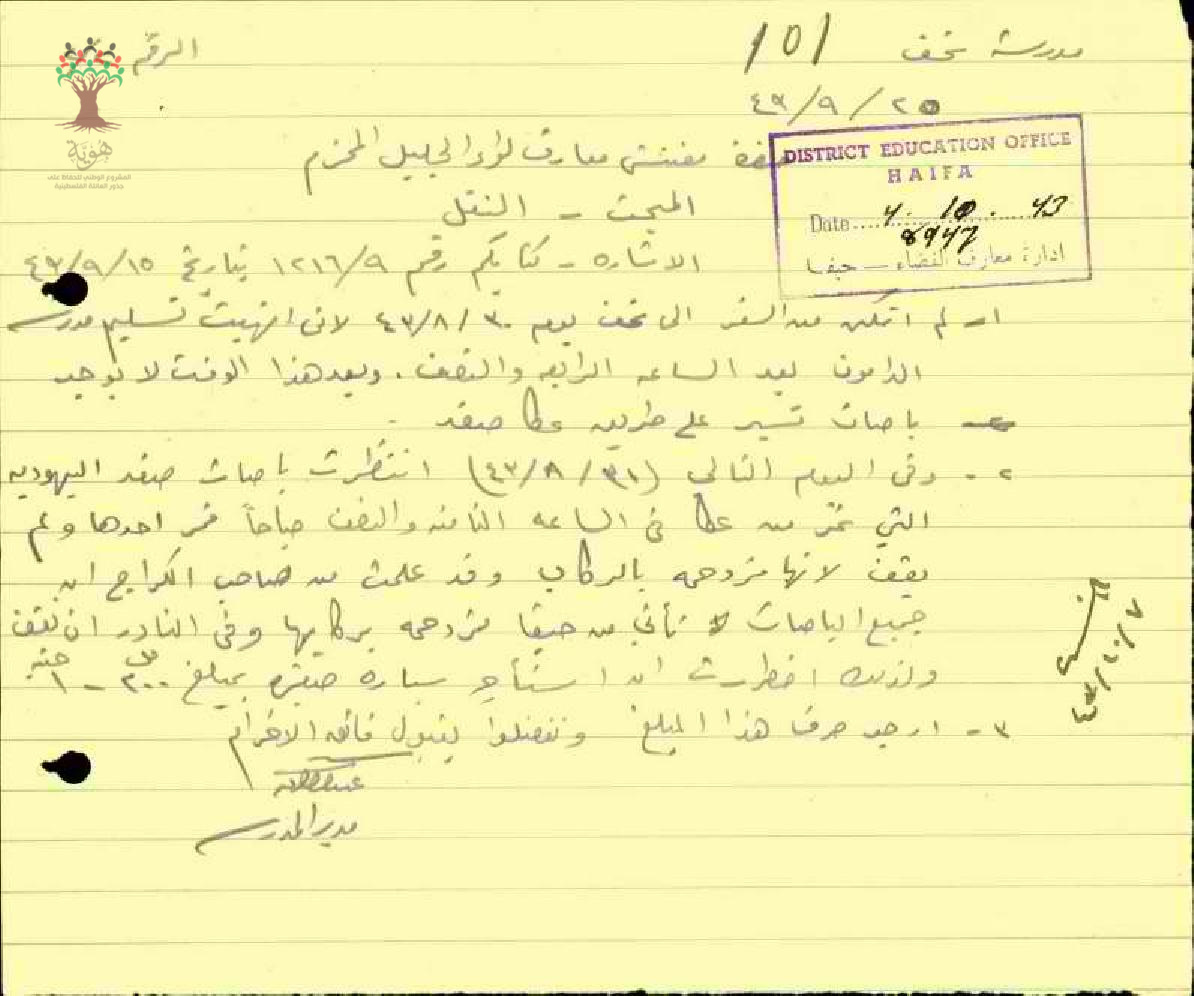 مدرسة نحف
101
الرقم
٢٥/٩/٤٣
هوية
المشروع الوطني للحفاظ على
جذور العائلة الفلسطينية
حضرة مفتش معارف لواء الجليل المحترم
DISTRICT EDUCATION OFFICE
HAIFA
Date 4. 10. 43
8947
ادارة معارف القضاء — حيفا
المبحث - النقل
الاشاره - كتابكم رقم ١٢١٦/٩ بتاريخ ٤٣/٩/١٥
١- لم اتمكن من السفر الى نحف يوم ٤٣/٨/٣٠ لاني انهيت تسليم مدرسة
الدامون بعد الساعه الرابعه والنصف . وبعد هذا الوقت لا يوجد
باصات تسير على طريق عكا صفد .
٢- وفي اليوم التالي (٤٣/٨/٣١) انتظرت باصات صفد اليهوديه
التي تمر من عكا في الساعه الثامنه والنصف صباحاً فمر احدها ولم
يقف لانها مزدحمه بالركاب وقد علمت من صاحب الكراج ان
جميع الباصات تأتي من حيفا مزدحمه بركابها وفي النادر ان تقف
ولذلك اضطررت ان استأجر سياره صغيره بمبلغ
٣- ارجو صرف هذا المبلغ وتفضلوا بقبول فائق الاحترام
مدير المدرسة
٤٣/١٠/٧